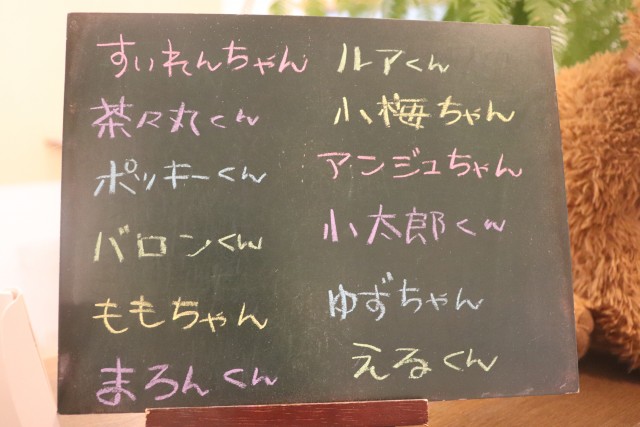 すいれんちゃん
茶々丸くん
ポッキーくん
バロンくん
ももちゃん
まろんくん
ルアくん
小梅ちゃん
アンジュちゃん
小太郎くん
ゆずちゃん
えるくん